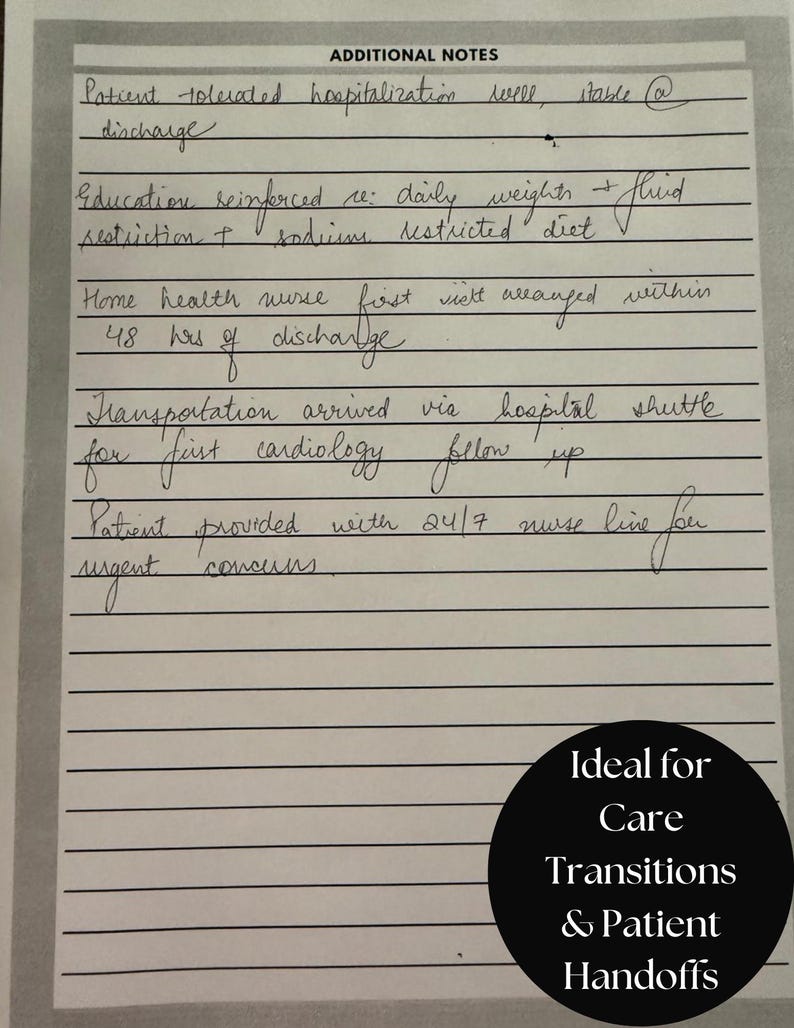 ADDITIONAL NOTES
Patient tolerated hospitalization well, stable @
discharge
Education reinforced re: daily weights + fluid
restriction + sodium restricted diet
Home health nurse first visit arranged within
48 hrs of discharge
Transportation arrived via hospital shuttle
for first cardiology follow up
Patient provided with 24/7 nurse line for
urgent concerns.
Ideal for
Care
Transitions
& Patient
Handoffs